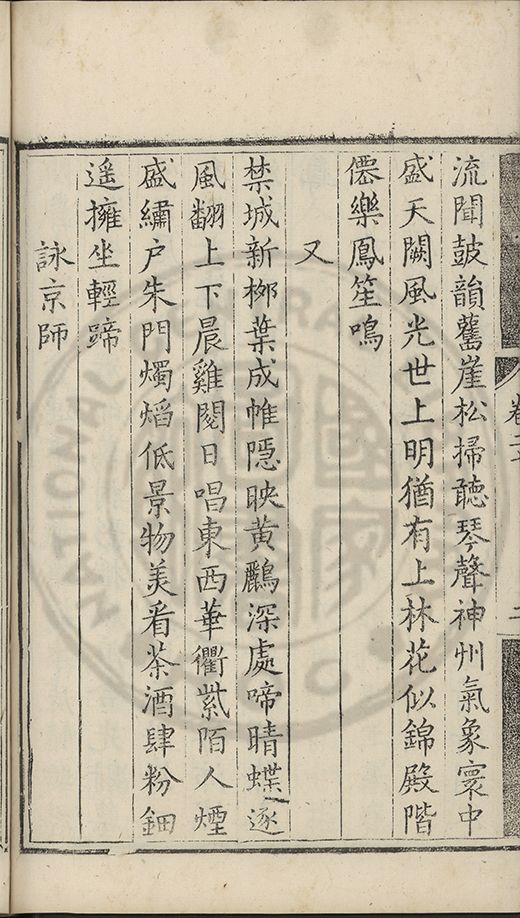 流聞鼓韻鶴崖松掃聽琴聲神州氣象寰中
盛天闕風光世上明猶有上林花似錦殿階
僊樂鳳笙鳴
又
禁城新栁葉成帷隱映黄鸝深處啼晴蝶逐
風翻上下晨雞閱日唱東西華衢紫陌人煙
盛繡户朱門燭熖低景物美看茶酒肆粉鈿
遥擁坐輕蹄
詠京師
卷二
二